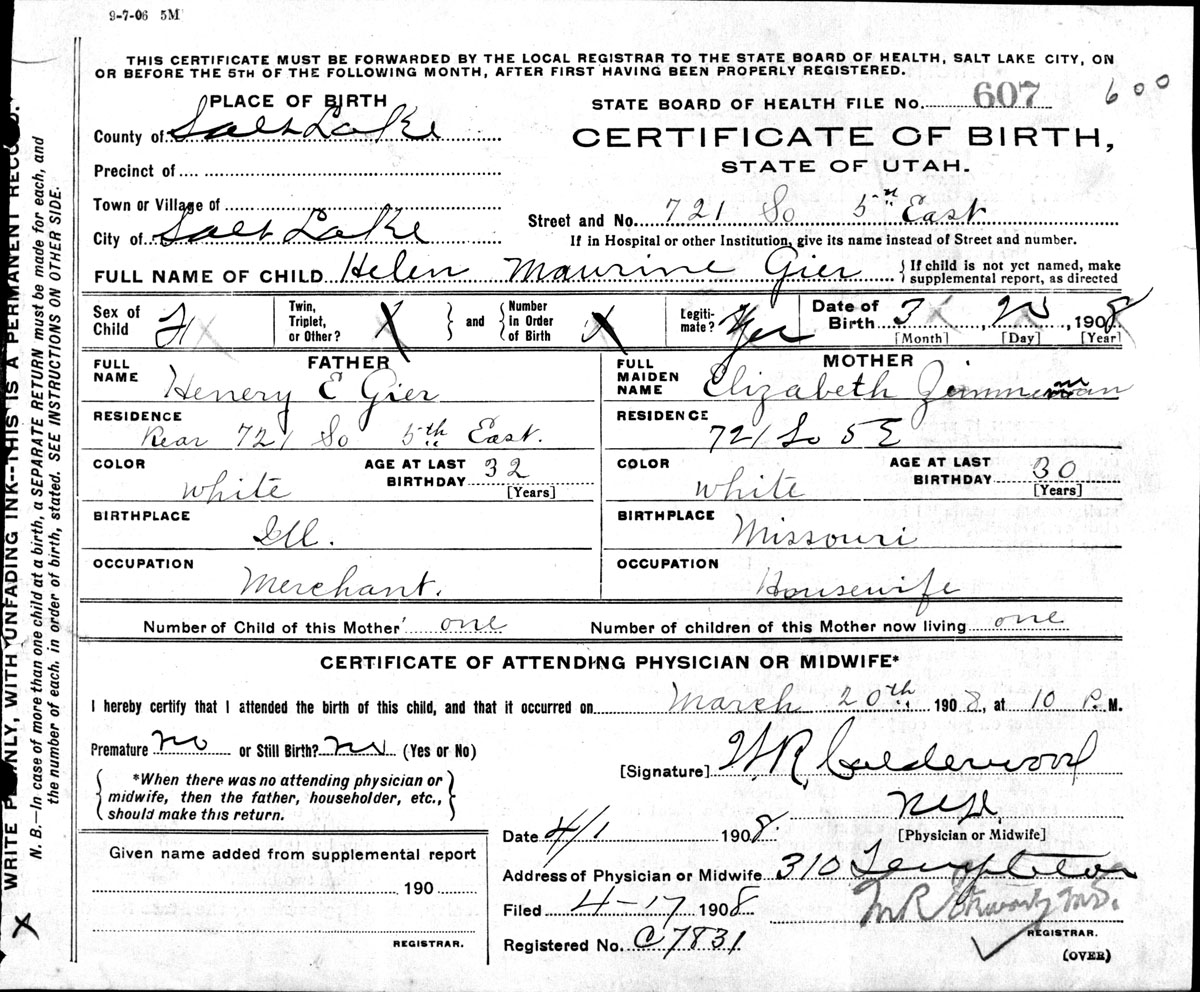 9-7-06 5M
THIS CERTIFICATE MUST BE FORWARDED BY THE LOCAL REGISTRAR TO THE STATE BOARD OF HEALTH, SALT LAKE CITY, ON
OR BEFORE THE 5TH OF THE FOLLOWING MONTH, AFTER FIRST HAVING BEEN PROPERLY REGISTERED.
PLACE OF BIRTH
STATE BOARD OF HEALTH FILE No. 607 600
County of Salt Lake
CERTIFICATE OF BIRTH,
STATE OF UTAH.
Precinct of
Town or Village of
Street and No. 721 So 5th East
City of Salt Lake
If in Hospital or other Institution, give its name instead of Street and number.
FULL NAME OF CHILD Helen Maurine Gier
{ If child is not yet named, make
supplemental report, as directed
Sex of Child F X
Twin, Triplet, or Other? X } and { Number In Order of Birth X
Legiti-mate? Yes
Date of Birth 3 , 20 , 1908
[Month] [Day] [Year]
FATHER
FULL NAME Henery E Gier
RESIDENCE Rear 721 So 5th East.
COLOR white AGE AT LAST BIRTHDAY 32 [Years]
BIRTHPLACE Ill.
OCCUPATION Merchant.
MOTHER
FULL MAIDEN NAME Elizabeth Zimmerman
RESIDENCE 721 So 5 E
COLOR white AGE AT LAST BIRTHDAY 30 [Years]
BIRTHPLACE Missouri
OCCUPATION Housewife
Number of Child of this Mother one Number of children of this Mother now living one
CERTIFICATE OF ATTENDING PHYSICIAN OR MIDWIFE*
I hereby certify that I attended the birth of this child, and that it occurred on March 20th 1908, at 10 P. M.
Premature no or Still Birth? no (Yes or No)
[Signature] W.R. Calderwood
*When there was no attending physician or
midwife, then the father, householder, etc.,
should make this return.
M.D.
[Physician or Midwife]
Date 4/1 1908.
Address of Physician or Midwife 310 Templeton
Filed 4-17 1908
Registered No. C7831
REGISTRAR.
(OVER)
Given name added from supplemental report
190
REGISTRAR.
WRITE PLAINLY, WITH UNFADING INK--THIS IS A PERMANENT RECORD.
N. B.—In case of more than one child at a birth, a SEPARATE RETURN must be made for each, and
the number of each, in order of birth, stated. SEE INSTRUCTIONS ON OTHER SIDE.
X